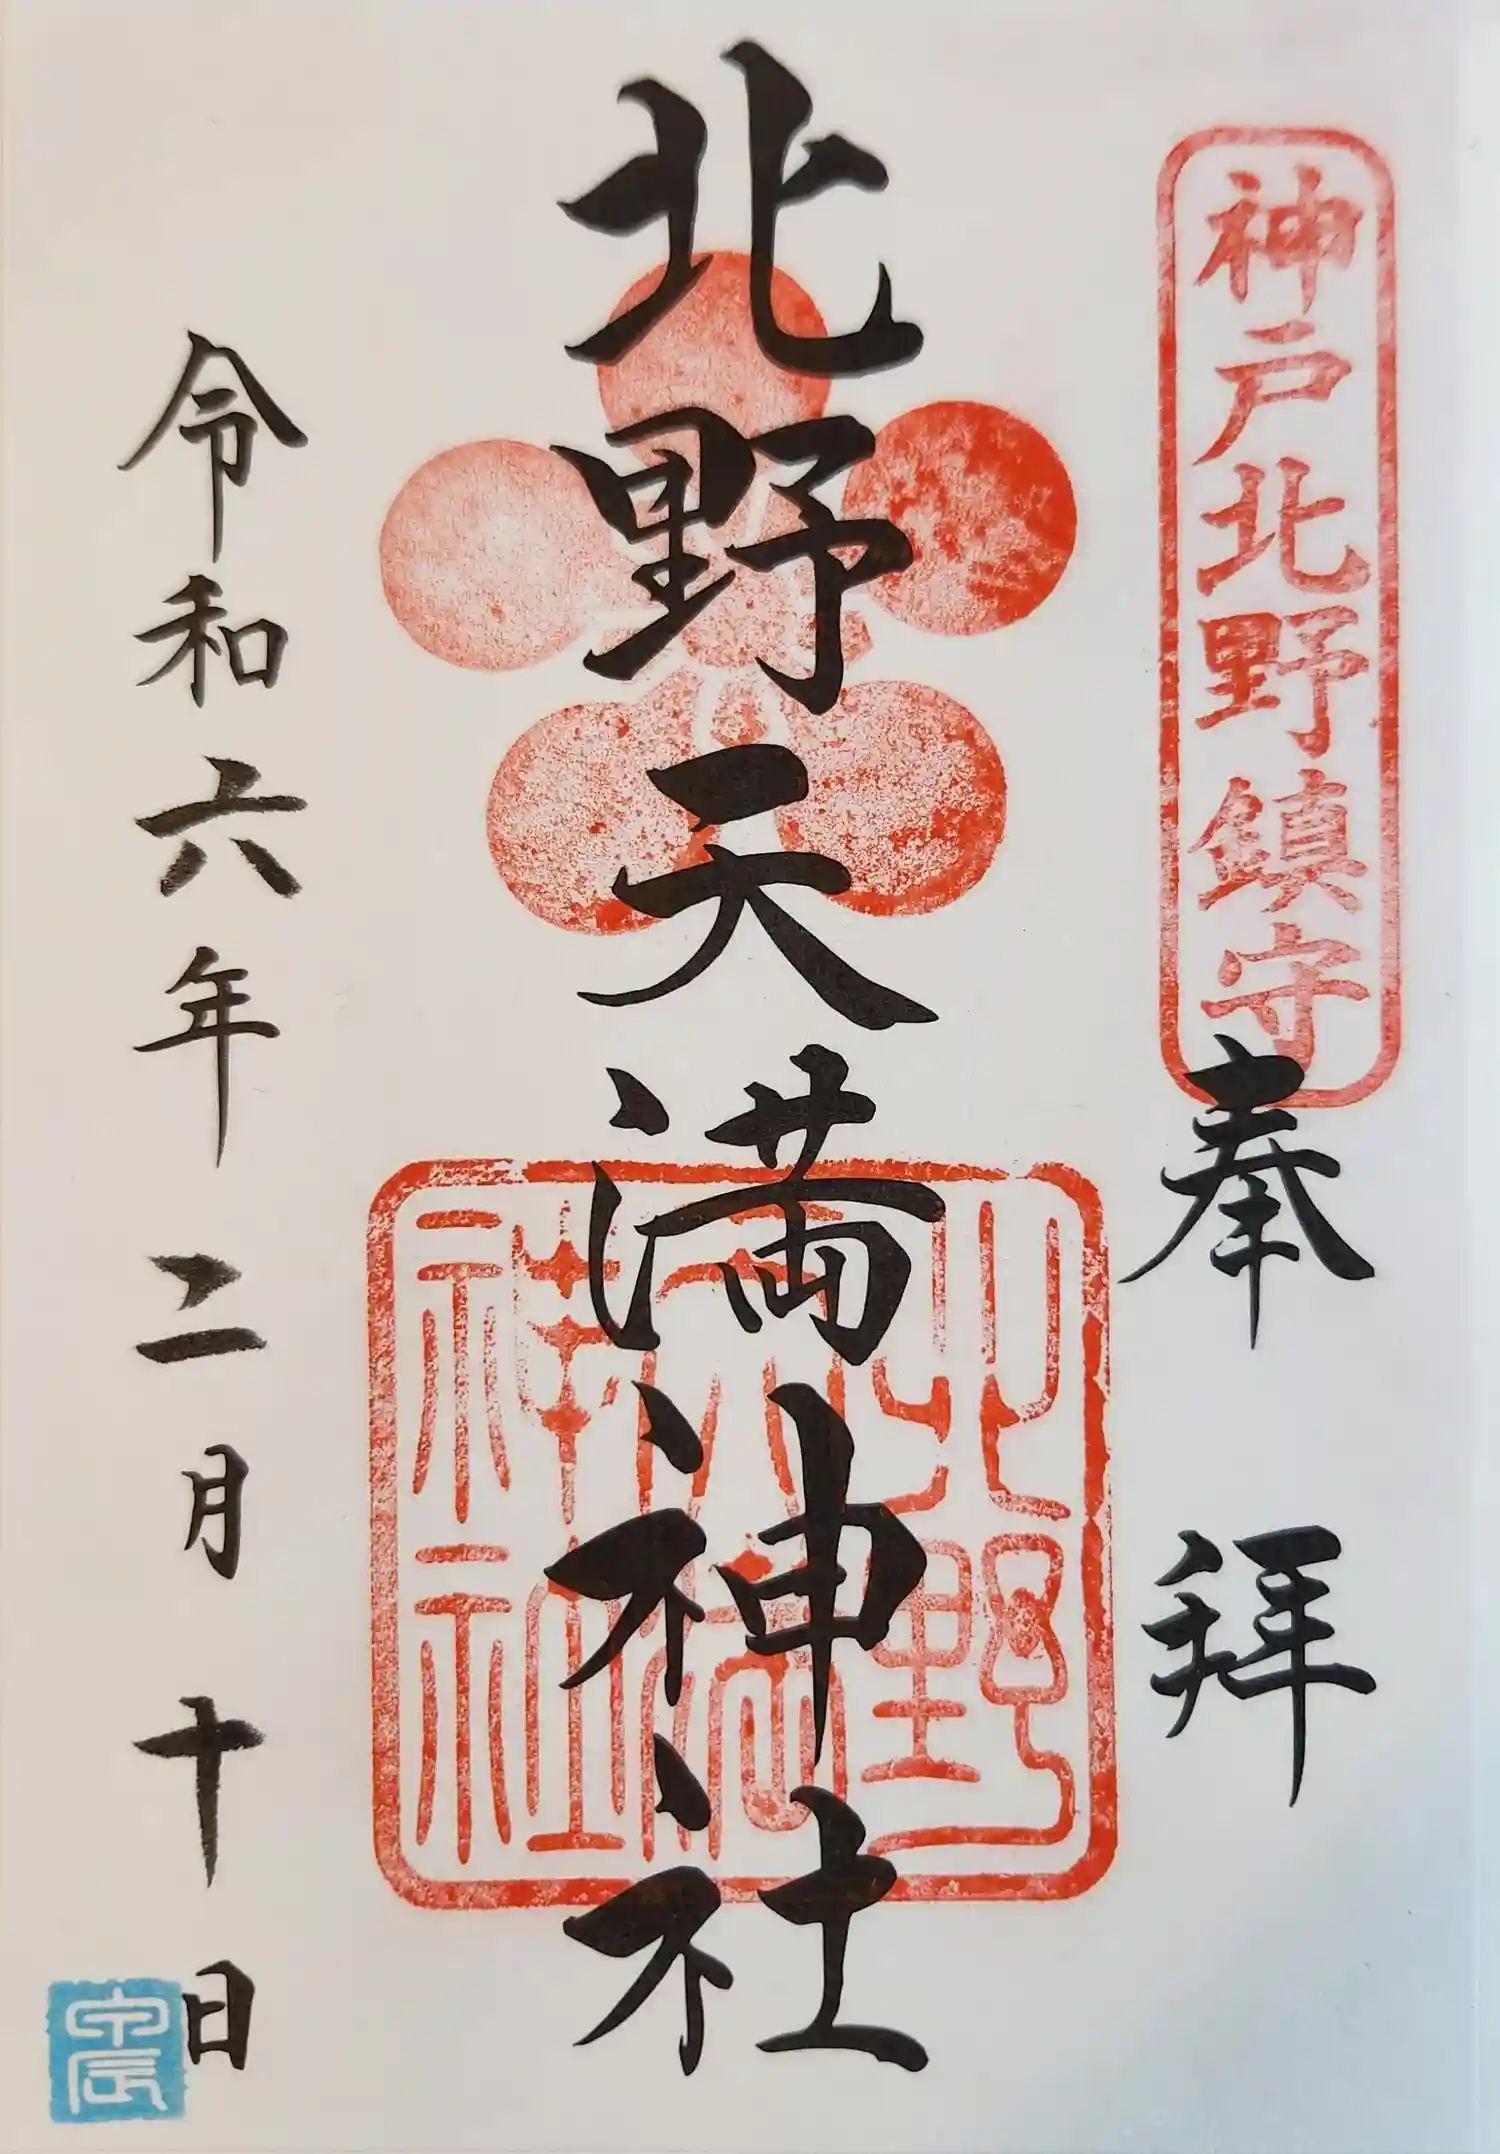 神戸北野鎮守
奉拝
北野天満神社
北野
天満
神社
令和六年二月十日
甲辰